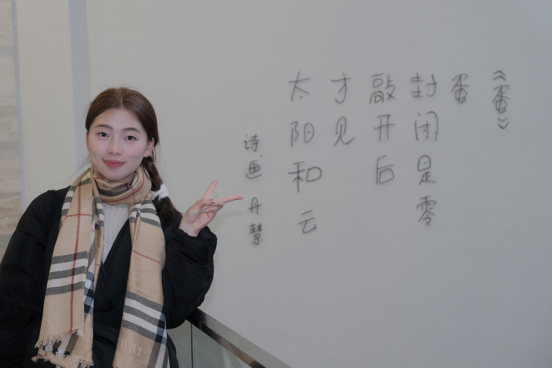 《蛋》
蛋
封闭是零
敲开后
才见
太阳和云
诗画 丹慧